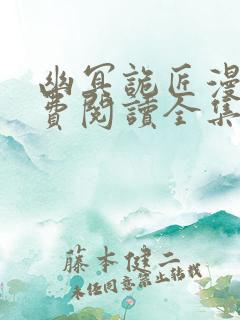 幽冥詭匠漫
費閱讀全集
藤本健二
未经同意禁止转载